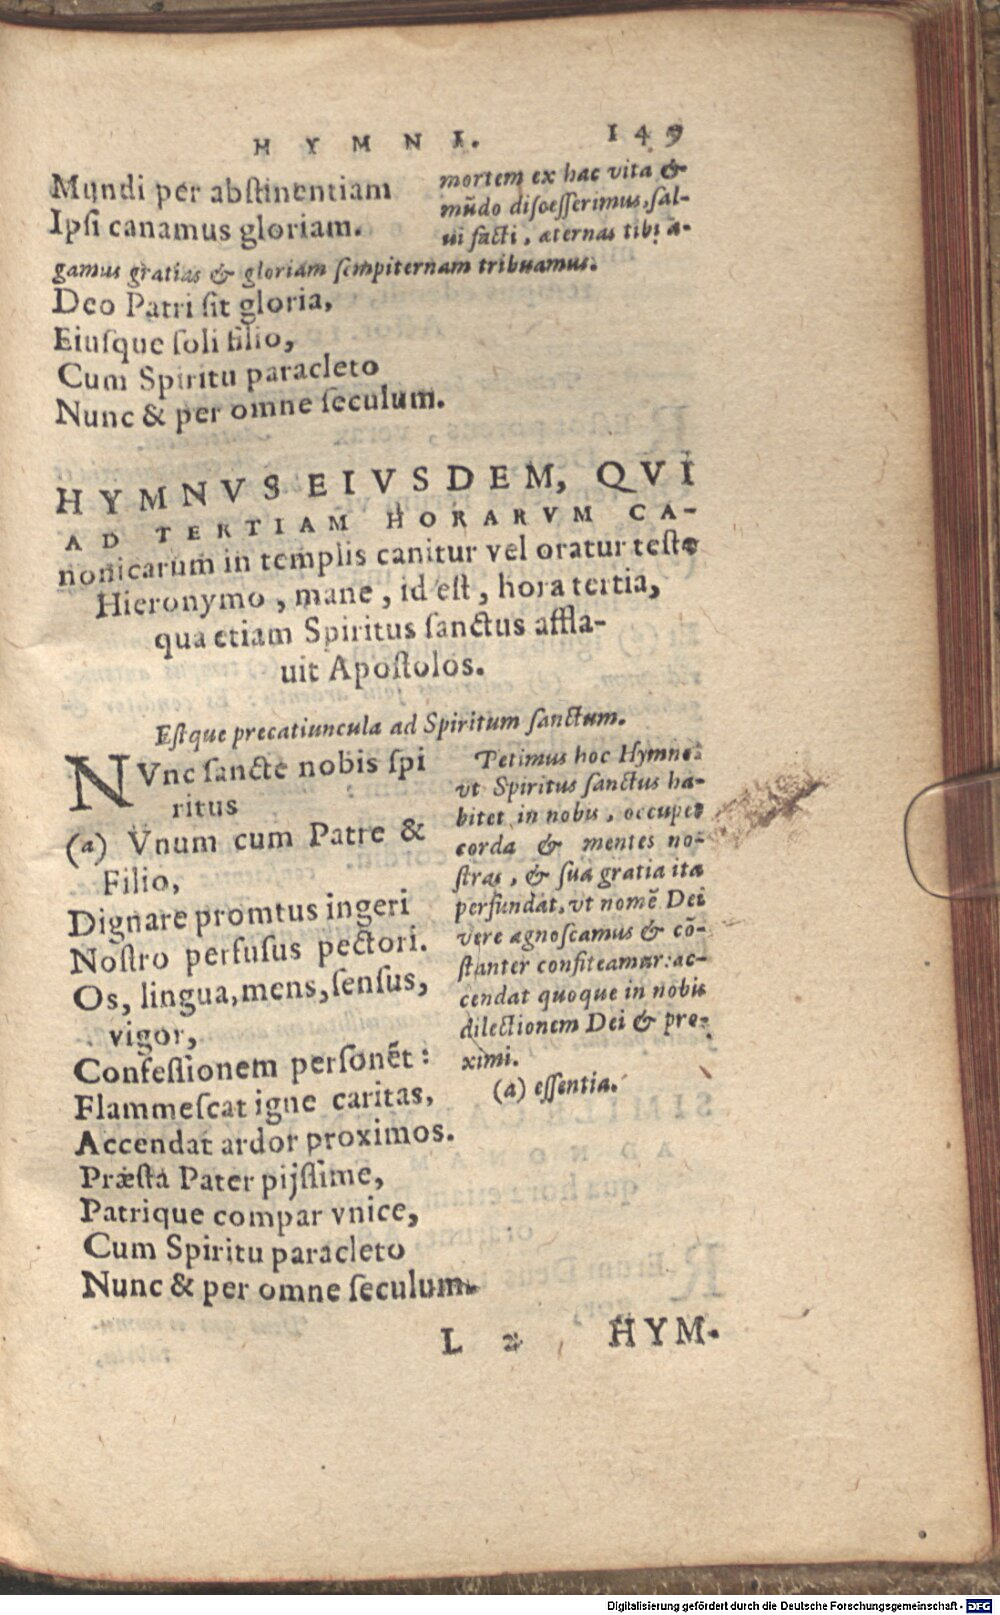 HYMNI. 149
Mundi per abstinentiam
Ipsi canamus gloriam.
mortem ex hac vita &
mūdo discesserimus, sal-
ui facti, æternas tibi a-
gamus gratias & gloriam sempiternam tribuamus.
Deo Patri sit gloria,
Eiusque soli filio,
Cum Spiritu paracleto
Nunc & per omne seculum.
HYMNVS EIVSDEM, QVI
AD TERTIAM HORARVM CA-
nonicarum in templis canitur vel oratur teste
Hieronymo, mane, id est, hora tertia,
qua etiam Spiritus sanctus affla-
uit Apostolos.
Estque precatiuncula ad Spiritum sanctum.
NVnc sancte nobis spi
ritus
(a) Vnum cum Patre &
Filio,
Dignare promtus ingeri
Nostro perfusus pectori.
Os, lingua, mens, sensus,
vigor,
Confessionem personēt:
Flammescat igne caritas,
Accendat ardor proximos.
Præsta Pater pijssime,
Patrique compar vnice,
Cum Spiritu paracleto
Nunc & per omne seculum.
Petimus hoc Hymno:
vt Spiritus sanctus ha-
bitet in nobis, occupet
corda & mentes no-
stras, & sua gratia ita
perfundat, vt nomē Dei
vere agnoscamus & cō-
stanter confiteamur: ac-
cendat quoque in nobis
dilectionem Dei & pro-
ximi.
(a) essentia.
L 2 HYM-
Digitalisierung gefördert durch die Deutsche Forschungsgemeinschaft - DFG